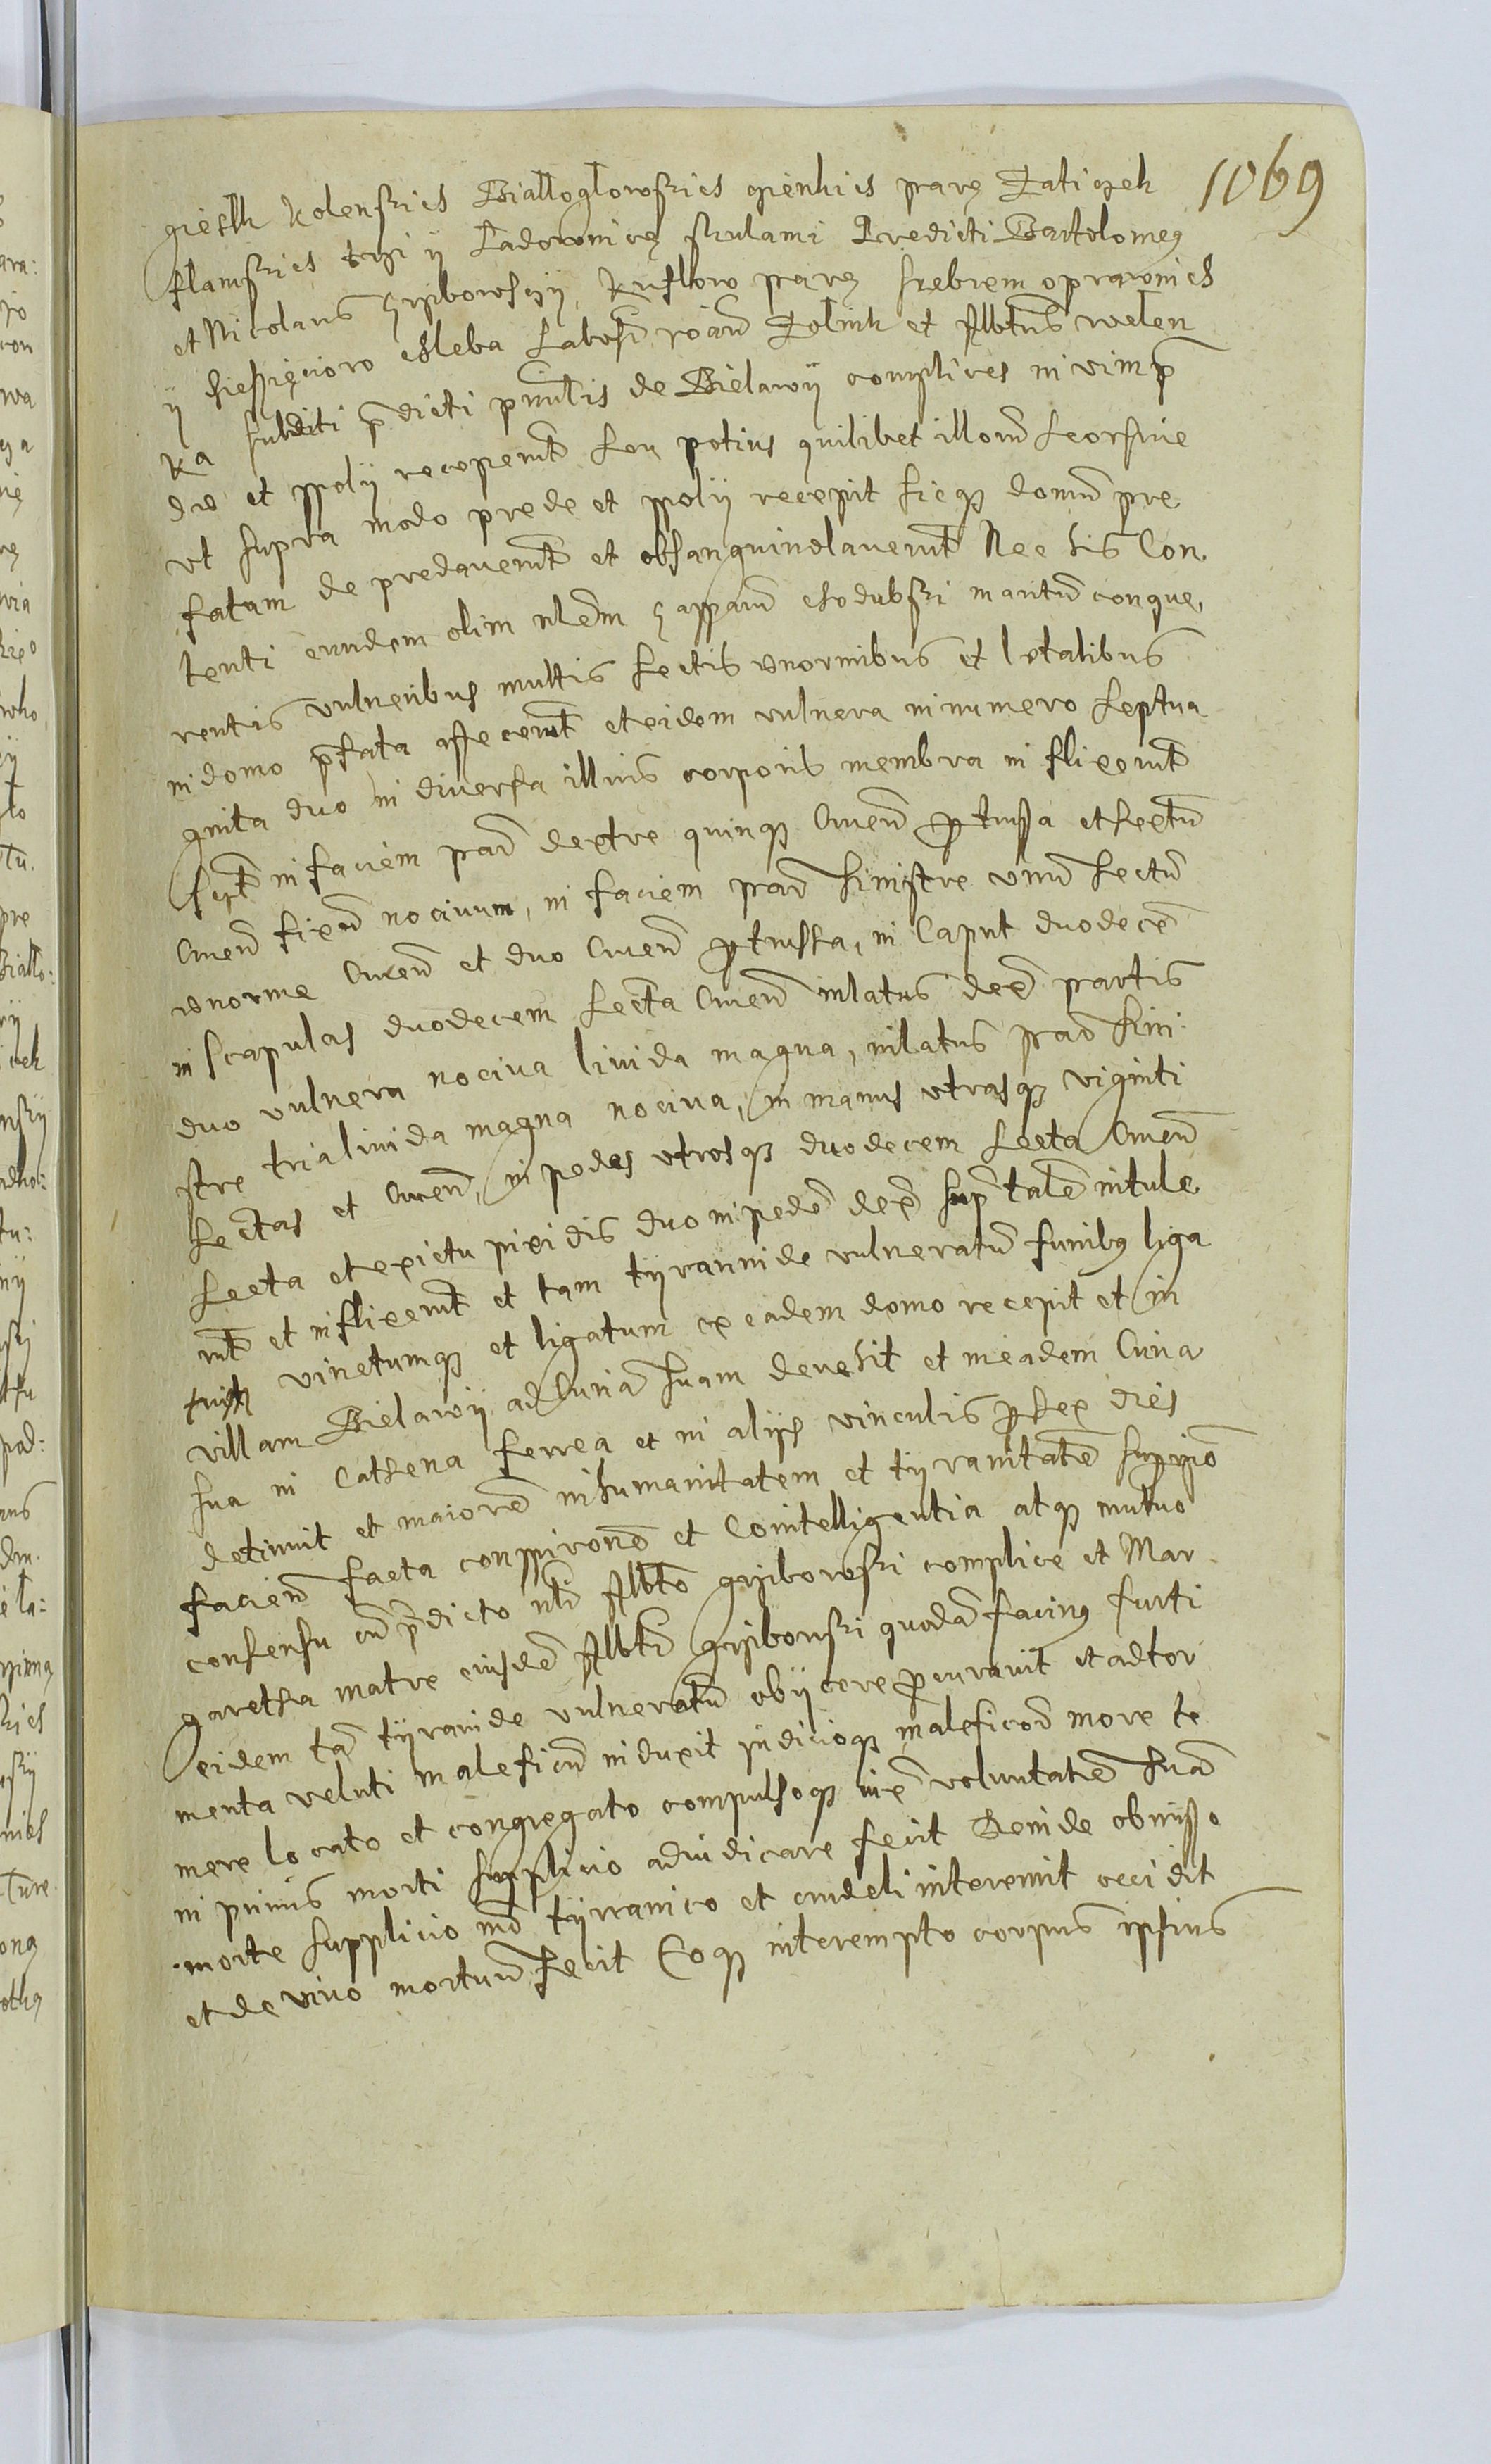 1069
Kolenskich Bialloglowskich czienkich parę
flamskich trzi y Ladownicę skulami Predicti Bartolomeus
et Nicolaus Grzibowsczy, Kuflow parę srebrem oprawnich
y sieszięcioro chleba Laboriosi Joannes Kolink et Albertus welen
ka subditi pdicti principalis de Bielawy complices in vim p
de et spolÿ receperunt seu potius quilibet illorum seorsive
ut supra modo prede et spolÿ recepit sicque domum pre
fatam depredaverunt et obsanguinolaverunt Nec his Con
tenti eundem olim nlem Casparum Chodubski maritum conque,
rentis vulneribus multis sectis enormibus et letalibus
in domo pfata affecerunt et eidem vulnera in numero septua
ginta duo in diversa illius corporis membra inflixerunt
in faciem partis dextre quinque cruen ptussa et sectum
cruen fixum nocivum, in faciem partis sinistre unum sectum
enorme cruen et duo cruen ptussa, in Caput duodecem
in scapulas duodecem secta cruen in latus dex partis
duo vulnera nociva livida magna, in latus partis sini
stre tria livida magna nociva, in manus utrasque viginti
sectas et cruen, in pedes utrosque duodecem secta cruen
secta et ex ictu pixidis duo in pedem dex sup talem intule
runt et inflixerunt et tam tyrannide vulneratum funibus liga
vinctumque et ligatum ex eadem domo recepit et in
villam Bielawy ad Curiam suam devehit et in eadem Curia
sua in Cathena ferrea et in alÿs vinculis p sex dies
detinuit et maiorem inhumanitatem et tyranitatem
facien facta conspiratione et Cointelligentia atque mutuo
consensu cum pdicto nli Alberto Grzibowski complice et Mar
garetha matre eiusdem Alberti Grzibowski quodam facinus furti
eidem tam tyranide vulneratum obÿcere pcuravit et ad tor
menta veluti maleficum induxit iudicioque maleficorum more te
mere locato et congregato compulsoque iuxta voluntatem suam
in primis morti supplicio adiudicare fecit Deinde obmisso
morte supplicio modo tyranico et crudeli interemit occidit
et de vivo mortuum fecit Eoque interempto corpus ipsius